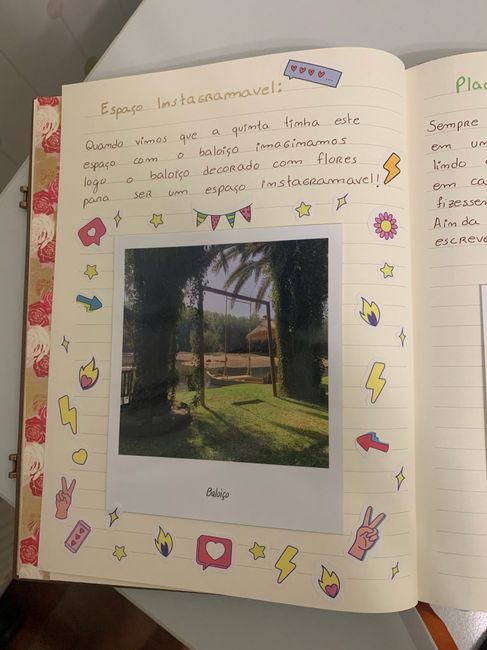 Espaço Instagramavel:
Quando vimos que a quinta tinha este
espaço com o baloiço imaginamos
logo o baloiço decorado com flores
para ser um espaço instagramavel!
Baloiço
Sempre
em um
lindo
em ca
fizessem
Ainda
escreve